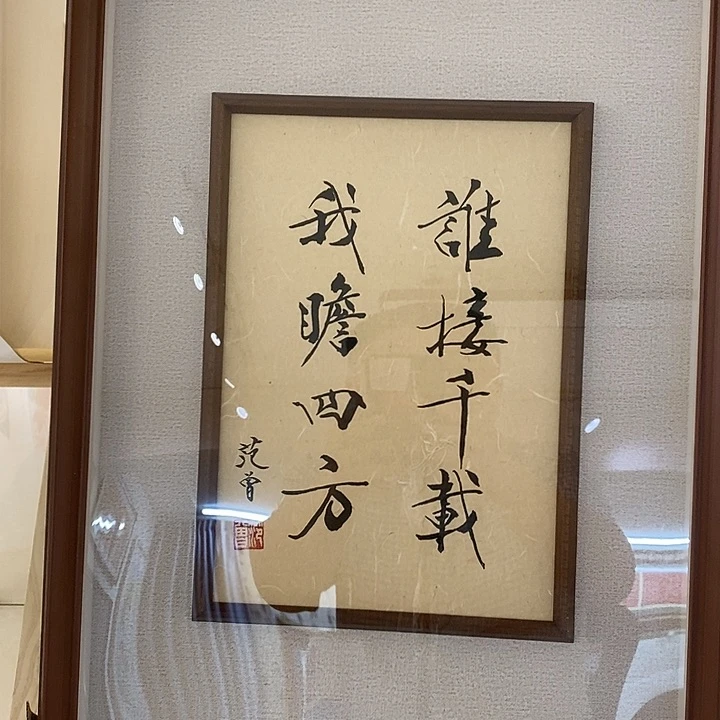 誰接千載
我瞻四方
范曾